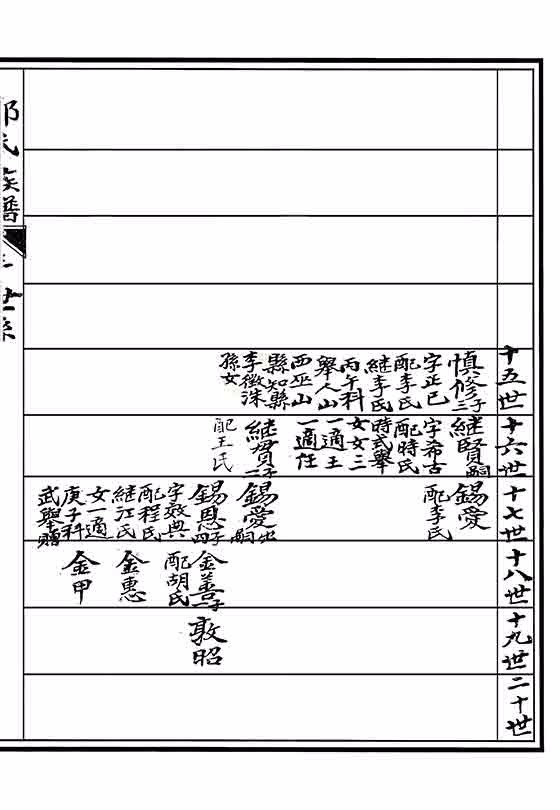 十五世
十六世
十七世
十八世
十九世
二十世
慎修三子
字正已
配李氏
継李氏
丙午科
舉人山
西巫山
縣知縣
李徵洙
孫女
継賢嗣
字希古
配時氏
時式舉
女女三
一適王
一適任
継貫一子
配王氏
錫愛
配李氏
錫愛出嗣
錫恩四子
字效典
配程氏
継江氏
女一適
庚子科
武舉贈
金善一子
配胡氏
金惠
金甲
敦昭
氏族譜
世系